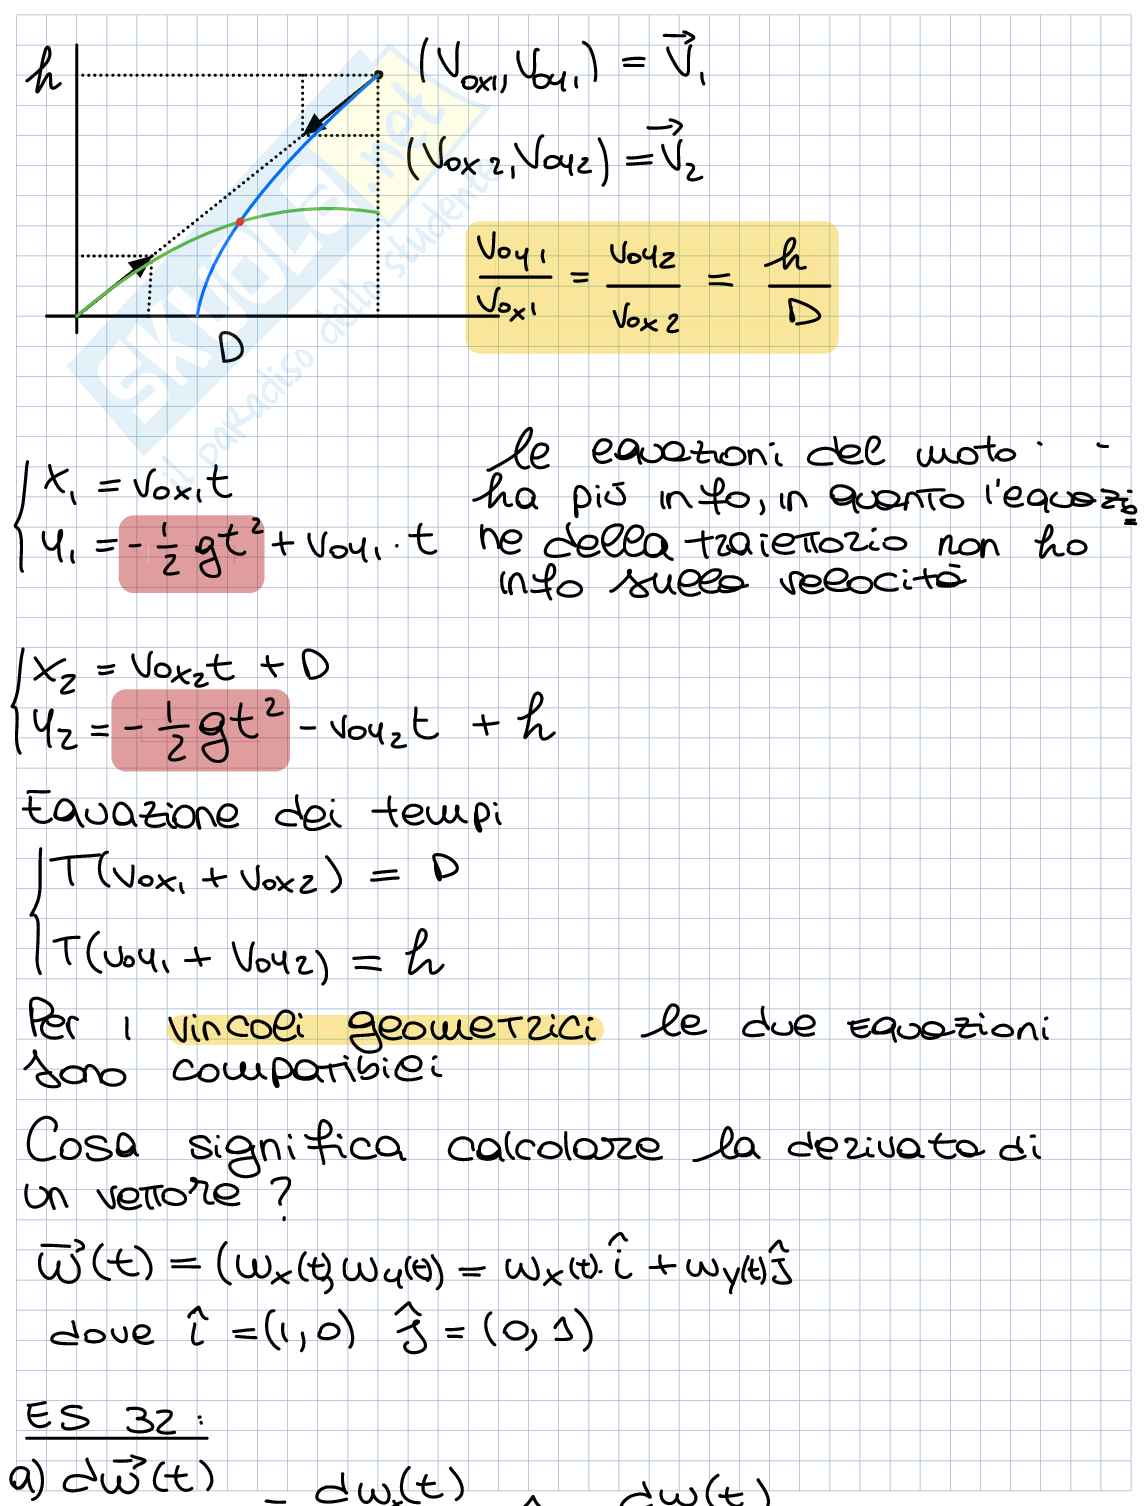 h
(Vox1, Voy1) = V⃗1
(Vox2, Voy2) = V⃗2
Voy1/Vox1 = Voy2/Vox2 = h/D
D
SKUOLA.net
il paradiso dello studente
x1 = vox1t
y1 = -1/2 gt² + voy1 · t
le equazioni del moto
ha più info, in quanto l'equazio
ne della traiettoria non ha
info sulla velocità
x2 = vox2t + D
y2 = -1/2 gt² - voy2t + h
Equazione dei tempi
T(vox1 + vox2) = D
T(voy1 + voy2) = h
Per i vincoli geometrici le due equazioni
sono compatibili
Cosa significa calcolare la derivata di
un vettore?
w⃗(t) = (wx(t), wy(t)) = wx(t)·î + wy(t)ĵ
dove î = (1,0) ĵ = (0,1)
ES 32:
a) dw⃗(t) = dwx(t) dw(t)